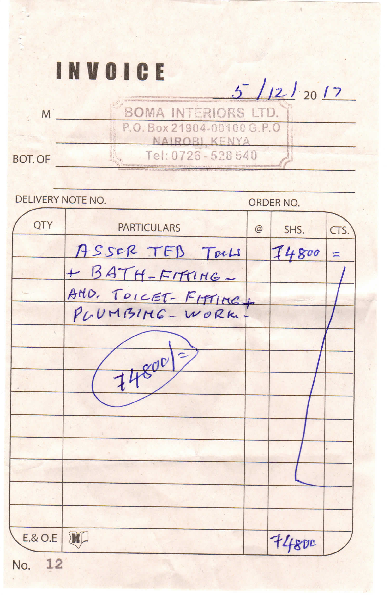 INVOICE
5/12/2017
M
BOMA INTERIORS LTD.
P.O. Box 21904-00100 G.P.O
NAIROBI, KENYA
Tel: 0726-528540
BOT. OF
DELIVERY NOTE NO. ORDER NO.
QTY PARTICULARS @ SHS. CTS.
ASSOR TED TOOLS 74800 =
+ BATH-FITTING-
AND. TOILET-FITTING+
PLUMBING-WORK-
74800/=
E.& O.E 74800
No. 12